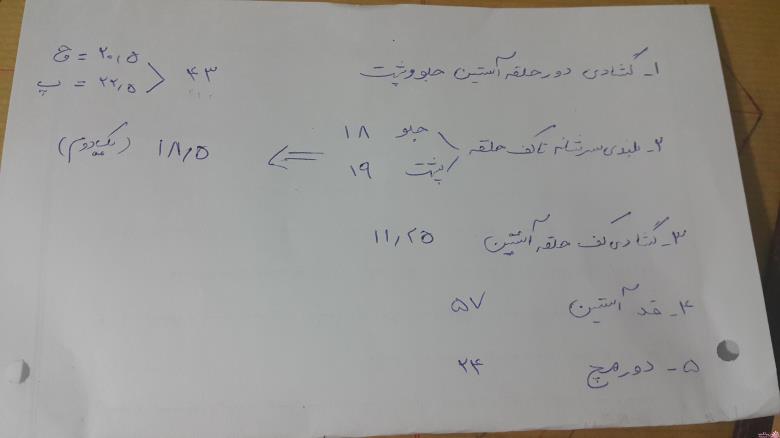 ۱- گشادی دور حلقه آستین جلو و پشت ۴۳ ج = ۲۰,۵ پ = ۲۲,۵
۲- بلندی سرشانه تا کف حلقه جلو ۱۸ پشت ۱۹ ⇐ ۱۸,۵ (یک دوم)
۳- گشادی کف حلقه آستین ۱۱,۲۵
۴- قد آستین ۵۷
۵- دور مچ ۲۴